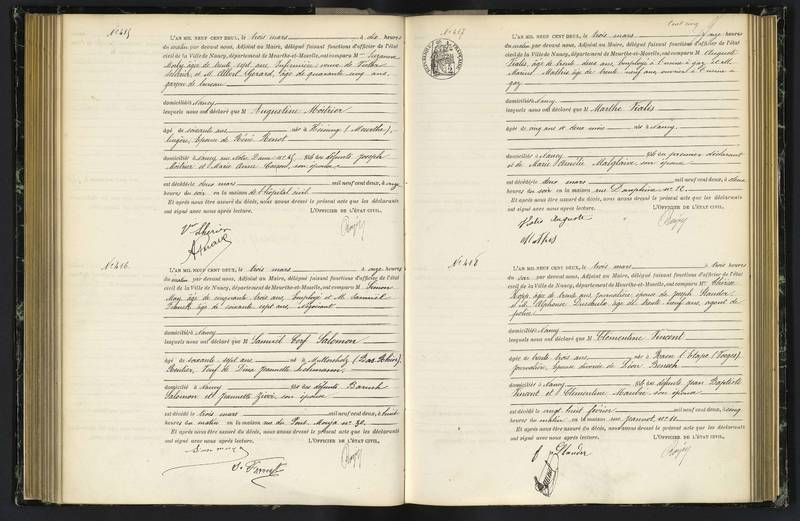 No 415
L'AN MIL NEUF CENT DEUX, le trois mars à dix heures
du matin par devant nous, Adjoint au Maire, délégué faisant fonctions d'officier de l'état
civil de la Ville de Nancy, département de Meurthe-et-Moselle, ont comparu Mme Suzanne
âgée de trente sept ans, Infirmière, veuve de Victor
et M. Albert Gérard, âgé de quarante cinq ans,
garçon de bureau
domiciliés à Nancy
lesquels nous ont déclaré que M Augustine Moitrier
âgée de soixante ans née à Héming (Meurthe),
lingère, épouse de Rémi Renot
domiciliée à Nancy, rue Notre Dame no 45, fille en défunts Joseph
Moitrier et Marie Anne son épouse
est décédée le deux mars mil neuf cent deux, à onze
heures du soir en la maison de l'hôpital civil
Et après nous être assuré du décès, nous avons dressé le présent acte que les déclarants
ont signé avec nous après lecture. L'OFFICIER DE L'ÉTAT CIVIL,
Vve Lhérier
No 416
L'AN MIL NEUF CENT DEUX, le trois mars à onze heures
du matin par devant nous, Adjoint au Maire, délégué faisant fonctions d'officier de l'état
civil de la Ville de Nancy, département de Meurthe-et-Moselle, ont comparu M. Simon
May, âgé de cinquante trois ans, Employé et M. Samuel
Franck âgé de soixante sept ans, Négociant
domiciliés à Nancy
lesquels nous ont déclaré que M Samuel Cerf Salomon
âgé de soixante sept ans né à Muttersholz (Bas Rhin),
Rentier, Veuf de Dina Jeannette
domicilié à Nancy fils en défunts Baruch
Salomon et Jeannette son épouse
est décédé le trois mars mil neuf cent deux, à huit
heures du matin en la maison rue du Pont Mouja no 30
Et après nous être assuré du décès, nous avons dressé le présent acte que les déclarants
ont signé avec nous après lecture. L'OFFICIER DE L'ÉTAT CIVIL,
Simon May
S. Franck
Cent cinq
No 417
L'AN MIL NEUF CENT DEUX, le trois mars à onze heures
du matin par devant nous, Adjoint au Maire, délégué faisant fonctions d'officier de l'état
civil de la Ville de Nancy, département de Meurthe-et-Moselle, ont comparu M. Auguste
Vialis, âgé de trente deux ans, employé à l'usine à gaz et M.
Marcel Mathis âgé de trente neuf ans ouvrier à l'usine à
gaz
domiciliés à Nancy
lesquels nous ont déclaré que M Marthe Vialis
âgée de cinq ans et deux mois née à Nancy
domiciliée à Nancy fille en premier déclarant
et de Marie Amélie Malglaive son épouse
est décédée le deux mars mil neuf cent deux, à
heures du soir en la maison rue Dauphine no 12
Et après nous être assuré du décès, nous avons dressé le présent acte que les déclarants
ont signé avec nous après lecture. L'OFFICIER DE L'ÉTAT CIVIL,
Vialis Auguste
Mathis
No 418
L'AN MIL NEUF CENT DEUX, le trois mars à trois heures
du soir par devant nous, Adjoint au Maire, délégué faisant fonctions d'officier de l'état
civil de la Ville de Nancy, département de Meurthe-et-Moselle, ont comparu Mme Thérèse
Hopp, âgée de trente ans, journalière, épouse de Joseph Stauder
et M. Alphonse âgé de trente neuf ans, agent de
police
domiciliés à Nancy
lesquels nous ont déclaré que M Clémentine Vincent
âgée de trente trois ans née à Raon l'Etape (Vosges),
journalière, épouse divorcée de Léon
domiciliée à Nancy fille en défunts Jean Baptiste
Vincent et Clémentine son épouse
est décédée le vingt huit février mil neuf cent deux, à cinq
heures du matin en la maison rue Jeannot no 10
Et après nous être assuré du décès, nous avons dressé le présent acte que les déclarants
ont signé avec nous après lecture. L'OFFICIER DE L'ÉTAT CIVIL,
Stauder